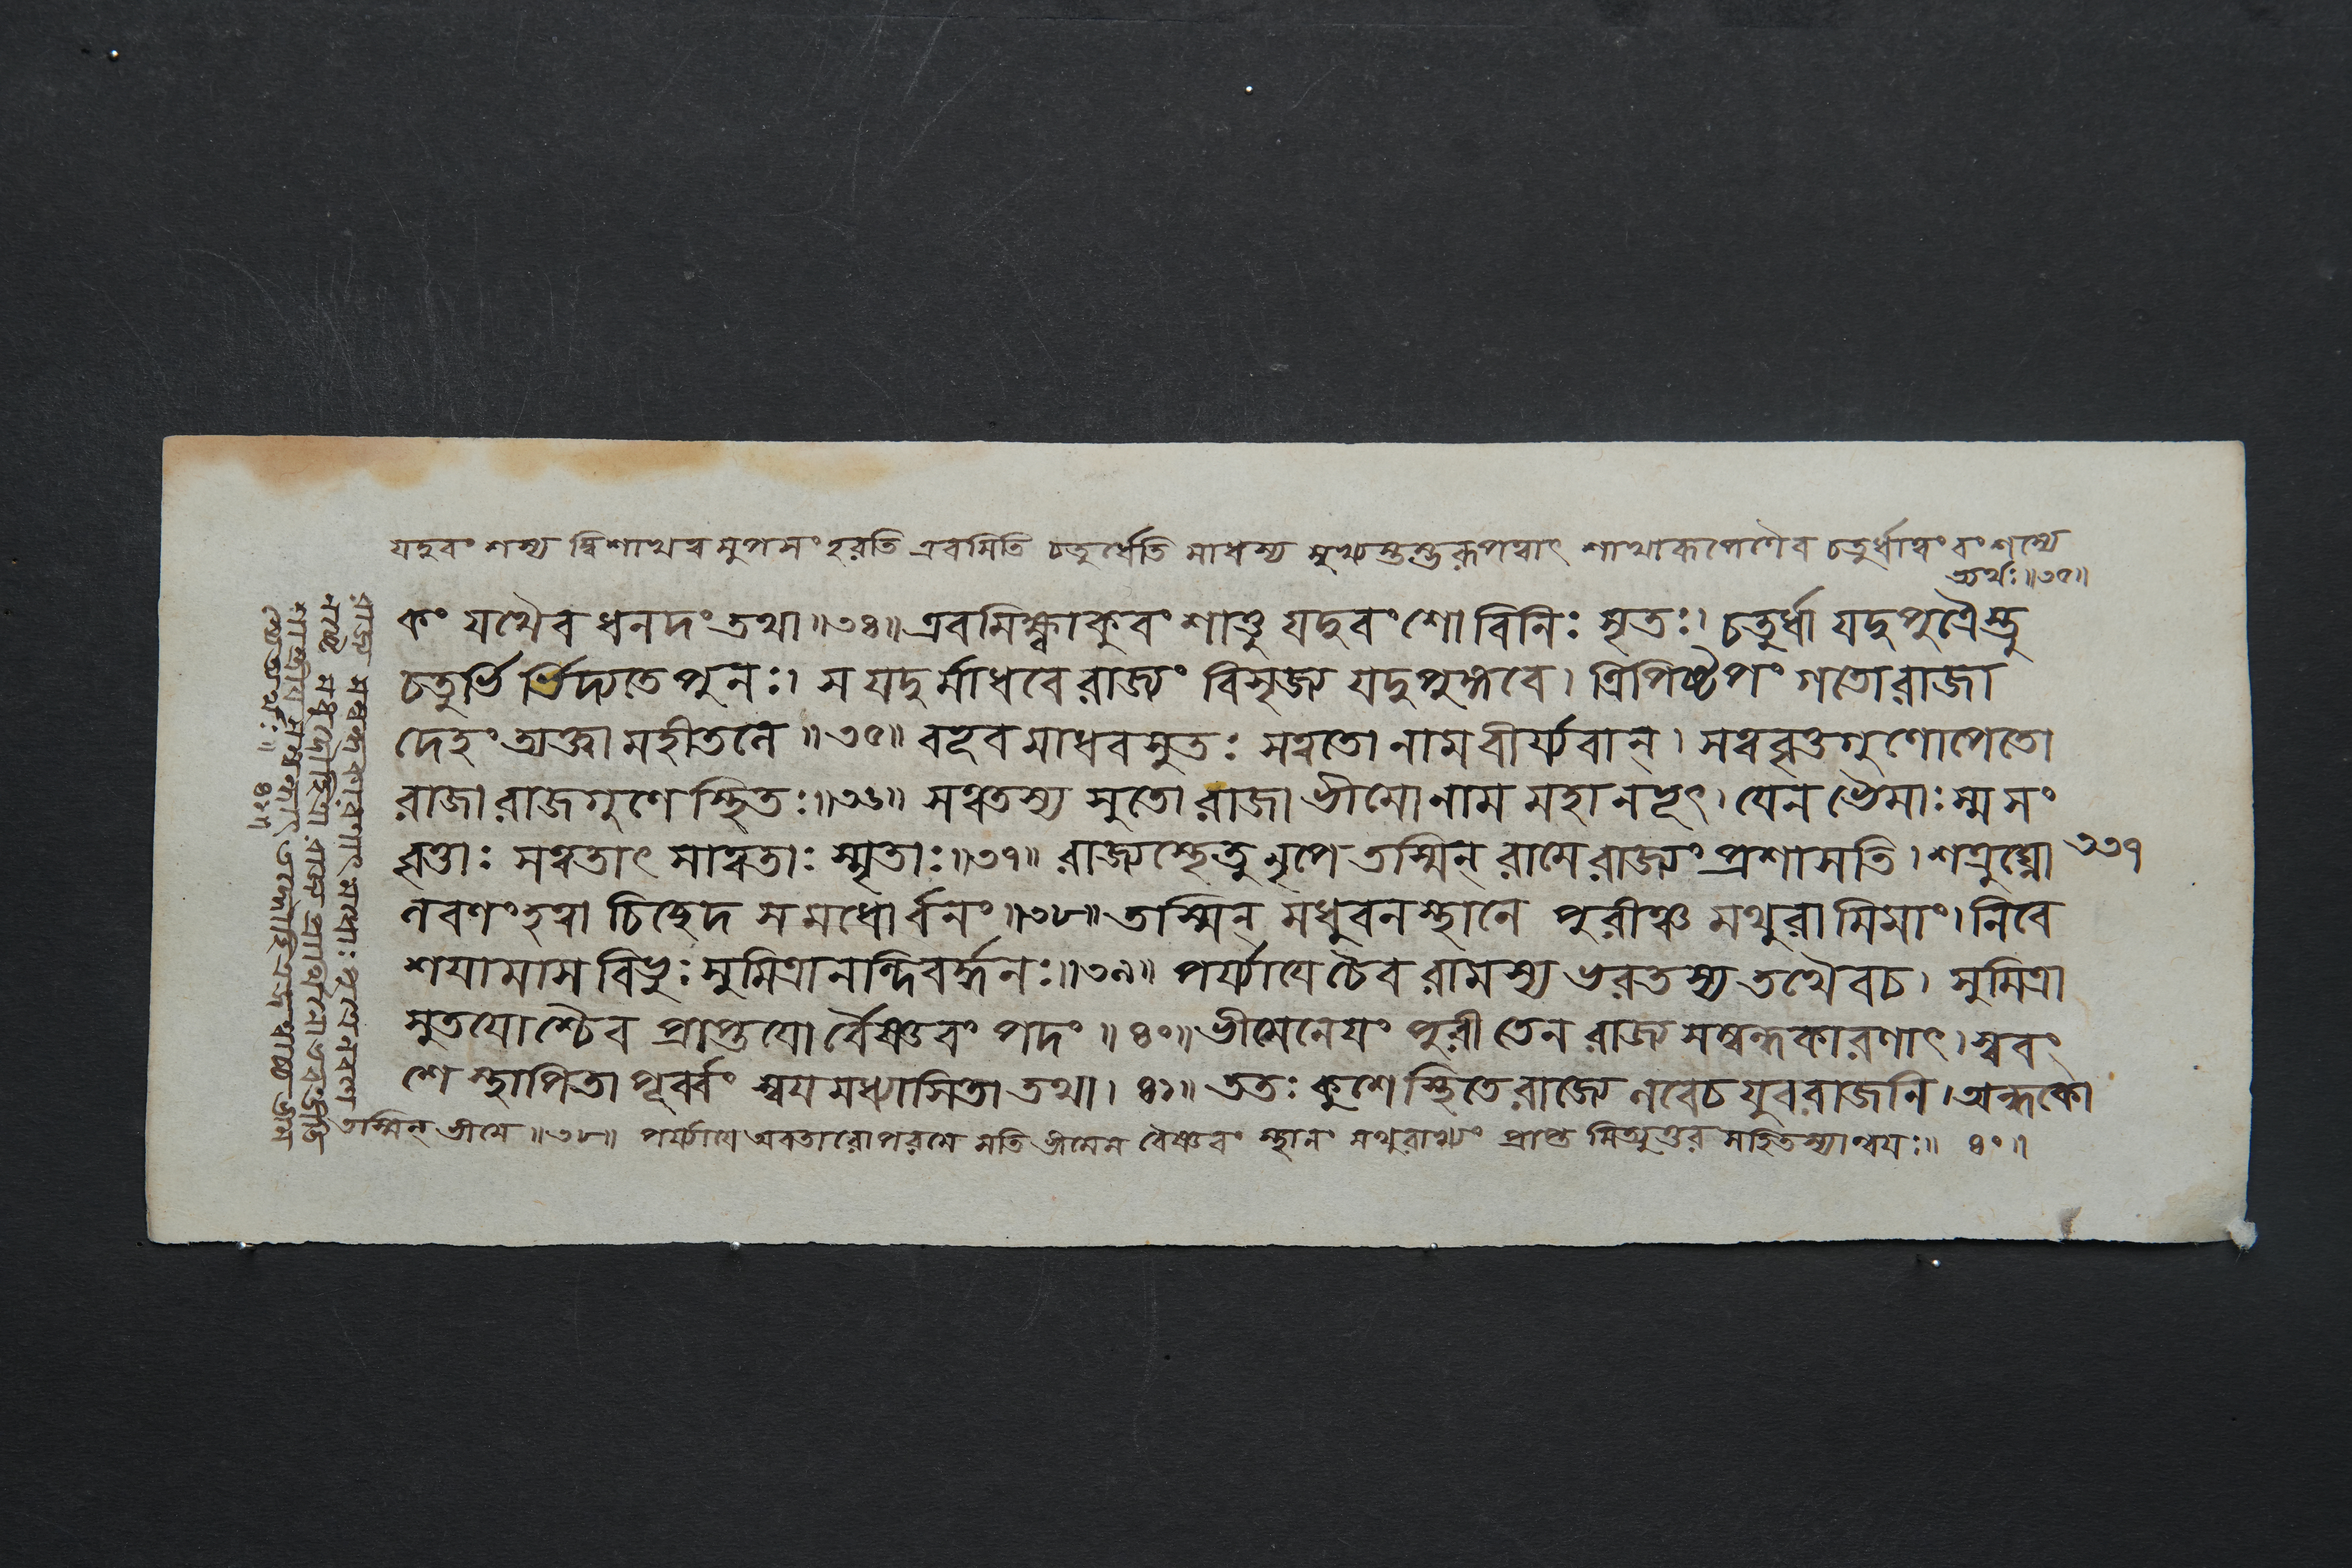 যদুবংশস্য দ্বিশাখত্ব মুপসংহরতি এবমিতি চতুর্ধেতি মাধবস্য মুখ্যস্তস্তুরূপত্বাৎ শাখারূপেণৈব চতুর্ধাত্বং বংশস্যে
ত্যর্থঃ॥৩৫॥
কং যথৈব ধনদং তথা॥৩৪॥ এবমিক্ষ্বাকুবংশাত্তু যদুবংশো বিনিঃসৃতঃ। চতুর্ধা যদুপুত্রৈস্তু
চতুর্ভি র্ভিদ্যতে পুনঃ। স যদুর্মাধবে রাজ্যং বিসৃজ্য যদুপুঙ্গবে। ত্রিপিষ্টপং গতো রাজা
দেহং ত্যক্ত্বা মহীতলে॥৩৫॥ বভূব মাধবসুতঃ সত্বতো নাম বীর্য্যবান্। সত্ববৃত্তগুণোপেতো
রাজা রাজগুণে স্থিতঃ॥৩৬॥ সত্বতস্য সুতো রাজা ভীমো নাম মহানভূৎ। যেন ভৈমাঃ স্ম সং
বৃত্তাঃ সত্বতাৎ সাত্বতাঃ স্মৃতাঃ॥৩৭॥ রাজ্যস্থেতু নৃপে তস্মিন্ রামে রাজ্যং প্রশাসতি। শত্রুঘ্নো
৩৩৭
লবণং হত্বা চিচ্ছেদ স মধোর্বনং॥৩৮॥ তস্মিন্ মধুবনস্থানে পুরীঞ্চ মথুরামিমাং। নিবে
শয়ামাস বিভুঃ সুমিত্রানন্দিবর্দ্ধনঃ॥৩৯॥ পর্য্যায়ে চৈব রামস্য ভরতস্য তথৈবচ। সুমিত্রা
সুতয়োশ্চৈব প্রাপ্তয়ো র্বৈষ্ণবং পদং॥৪০॥ ভীমেনেয়ং পুরী তেন রাজ্য সম্বন্ধকারণাৎ। স্ববং
শে স্থাপিতা পূর্ব্বং স্বয়মধ্যাসিতা তথা। ৪১॥ ততঃ কুশে স্থিতে রাজ্যে লবেচ যুবরাজনি। অন্ধকো
তস্মিন্ ভীমে॥৩৮॥ পর্য্যায়ে অবতারোপরমে সতি ভীমেন বৈষ্ণবং স্থানং মথুরাখ্যং প্রাপ্ত মিত্যুত্তর সহিতস্যান্বয়ঃ॥ ৪০॥
৪১॥